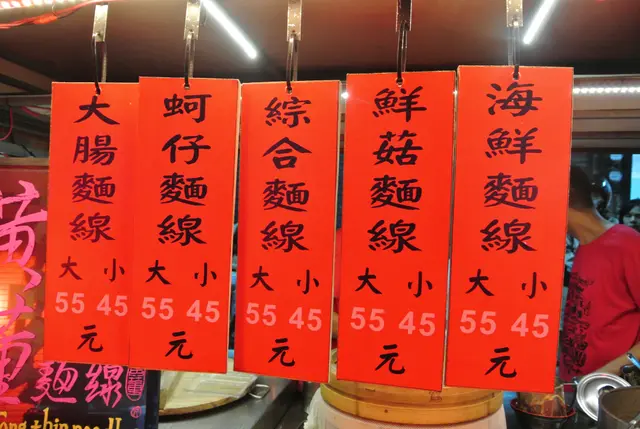 大腸麵線
大 小
55 45
元
蚵仔麵線
大 小
55 45
元
綜合麵線
大 小
55 45
元
鮮菇麵線
大 小
55 45
元
海鮮麵線
大 小
55 45
元
黃
麵線